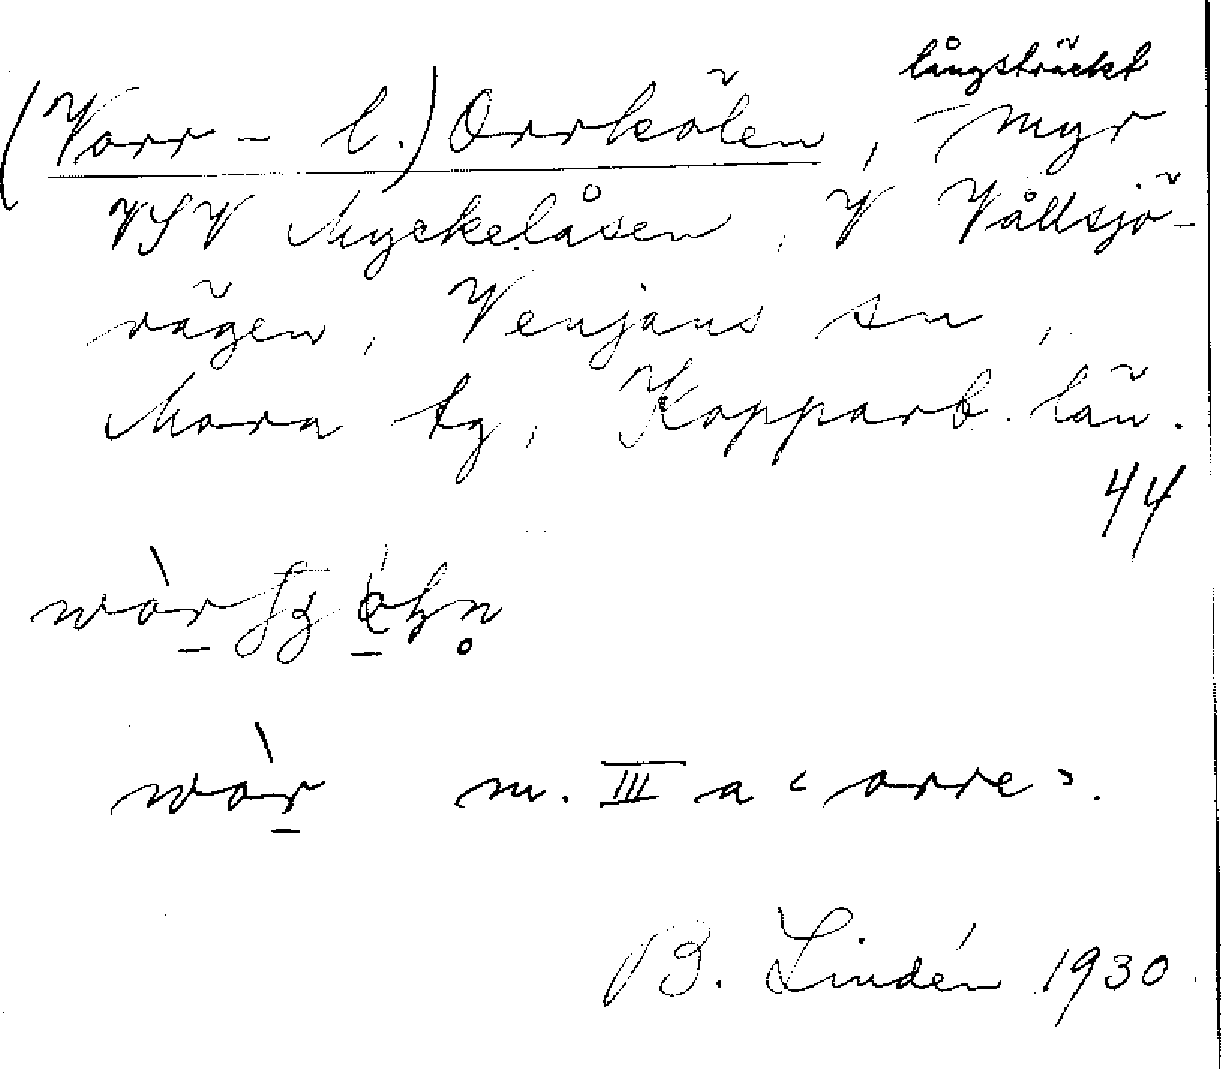 långsträckt
(Vorr- l.) Orrkölen, myr
VSV Myckelåsen, V Vållsjö-
vägen, Venjans sn,
Mora tg, Kopparb. län.
44
wòr
wòr m. III a "orre".
B. Lindén 1930